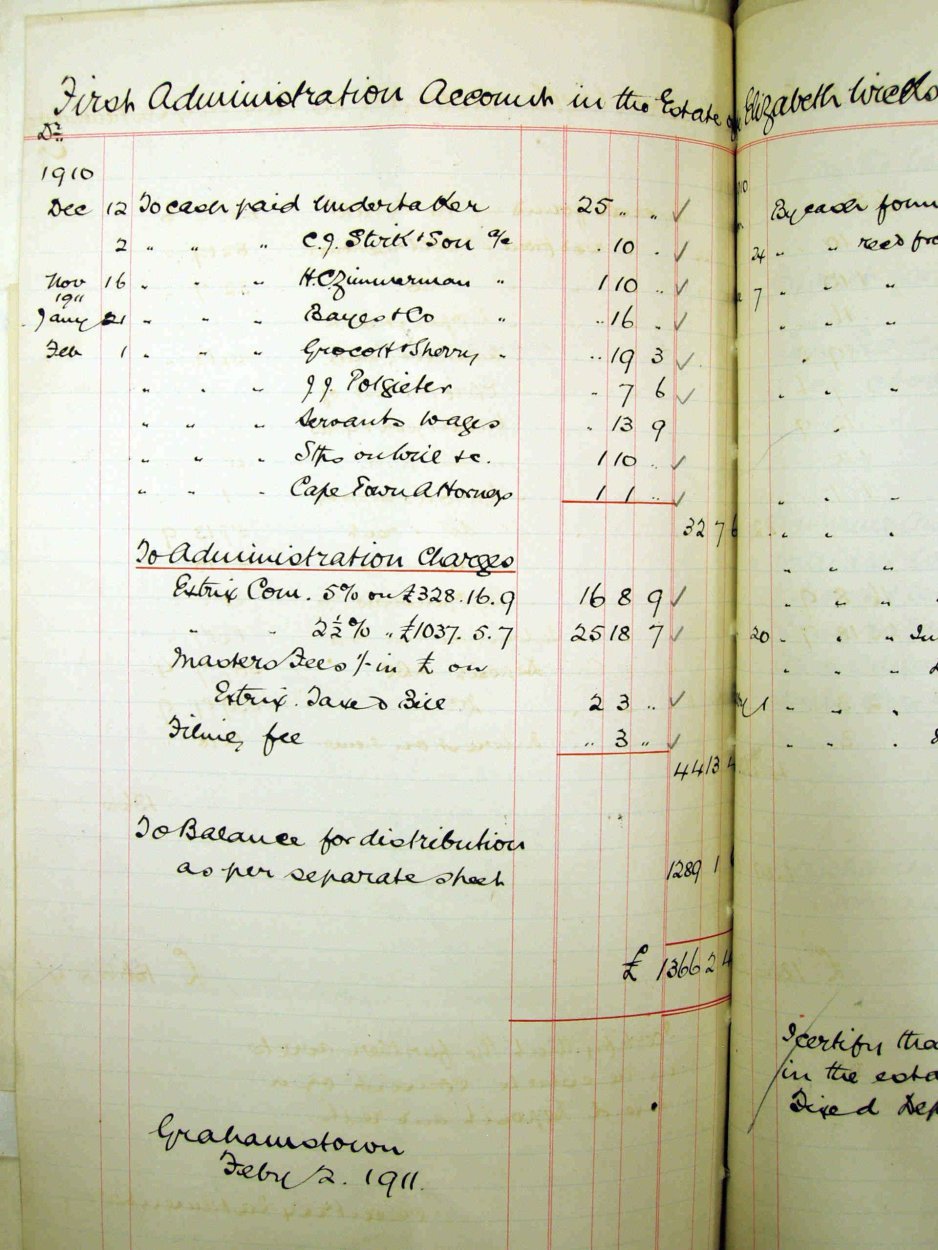 First Administration Account in the Estate of Elizabeth Wicks
Dr
1910
Dec 12 To cash paid Undertaker 25 " "
2 " " " C.J. Stirk & Son a/c " 10 "
Nov 16 " " " H.C. Zimmerman " 1 10 "
1911
Jany 21 " " " Bayes & Co " " 16 "
Feb 1 " " " Grocott & Sherry " " 19 3
" " " J.J. Potgieter " 7 6
" " " Servants wages " 13 9
" " " Stps on Will &c. 1 10 "
" " " Cape Town Attorneys 1 1 "
32 7 6
To Administration Charges
Extrix Com. 5% on £328.16.9 16 8 9
" " 2½% " £1037.5.7 25 18 7
Masters Fees 1/- in £ on
Extrix. Taxed Bill 2 3 "
Filing fee " 3 "
44 13 4
To Balance for distribution
as per separate sheet 1289 1
£ 1366 2 4
Grahamstown
Feby 2. 1911.
10
By cash foun
24 " " recd fro
7 " " "
" " "
"
" " "
"
" " "
" " "
" " "
" " "
20 " " " In
" " "
y 1 " " "
" " "
I certify tha
in the esta
Fixed Dep